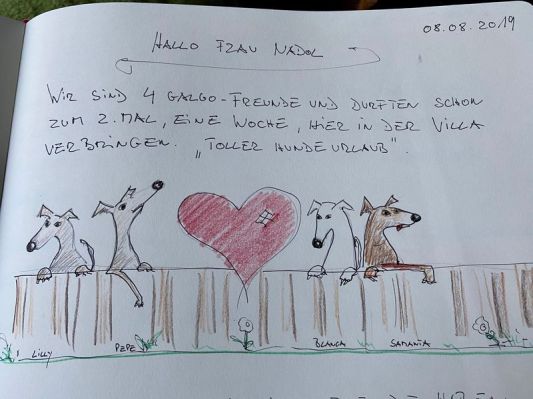 08.08.2019
HALLO FRAU NADOL
WIR SIND 4 GALGO-FREUNDE UND DURFTEN SCHON
ZUM 2. MAL, EINE WOCHE, HIER IN DER VILLA
VERBRINGEN. „TOLLER HUNDEURLAUB".
LILLY PEPE BLANCA SAMANTA